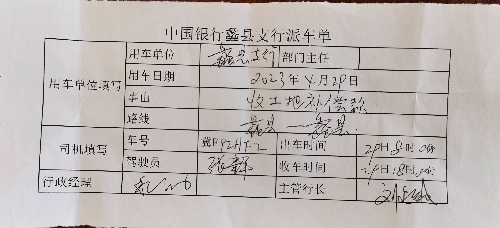 中国银行蠡县支行派车单
用车单位 蠡县支行 部门主任
用车单位填写 用车日期 2023年4月29日
事由 收工地补偿款
路线 蠡县 蠡县
司机填写 车号 出车时间 29日8时0分
驾驶员 收车时间 29日18时0分
行政经理 主管行长